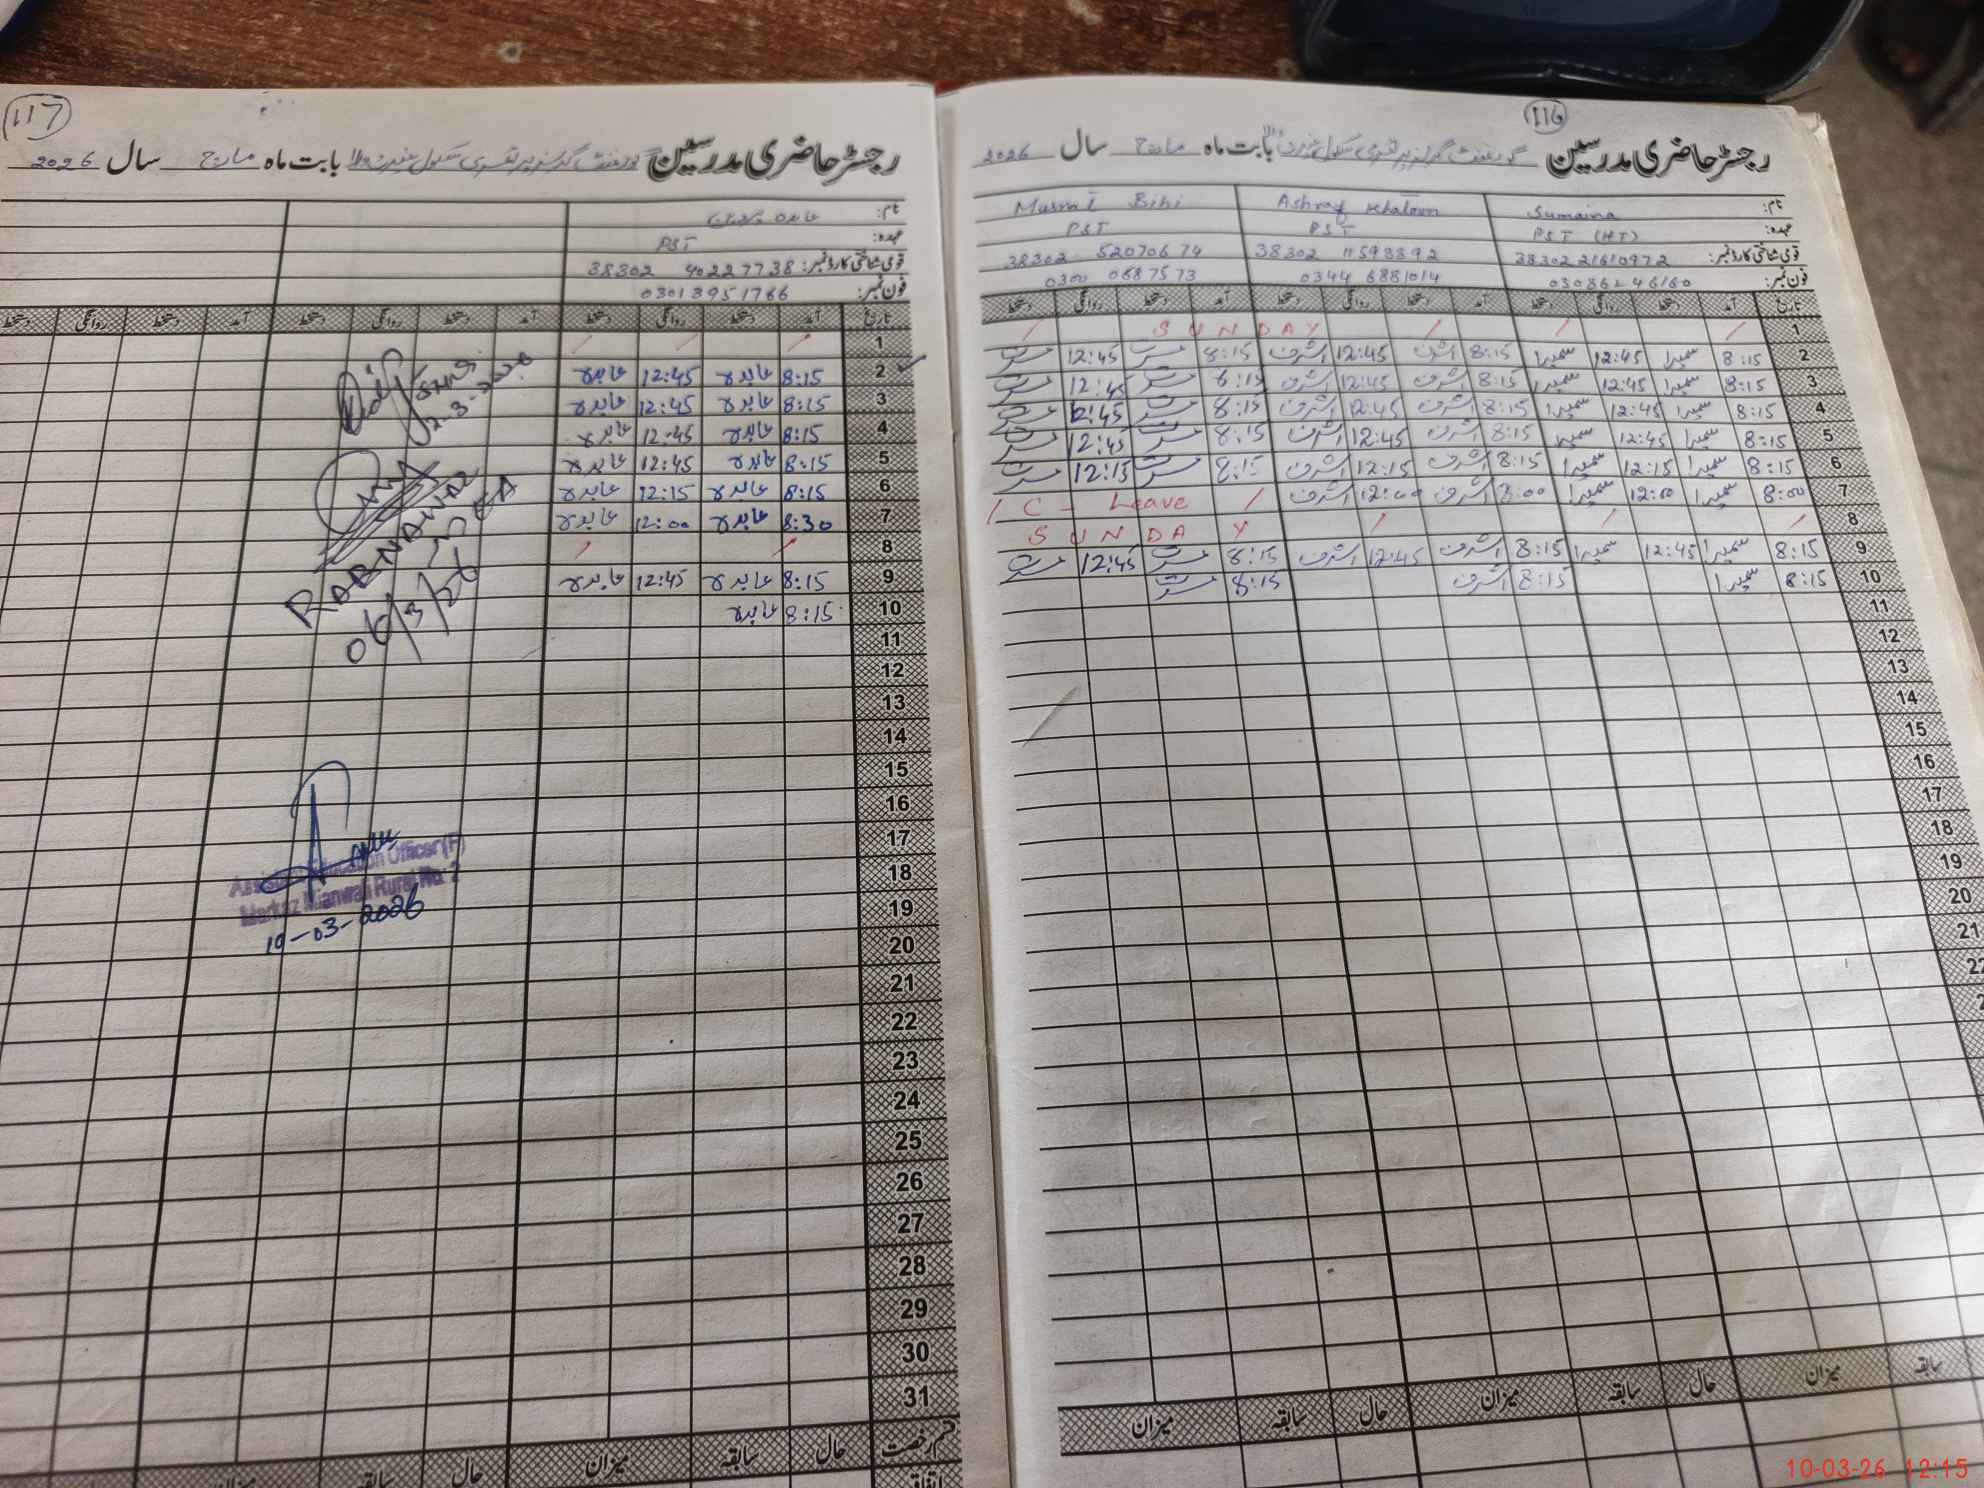 116
رجسٹر حاضری مدرسین گورنمنٹ گرلز پرائمری سکول بابت ماہ مارچ سال 2026
نام: Sumaina Ashraf Khatoon Musrat Bibi
عہدہ: PST (HT) PST PST
قومی شناختی کارڈ نمبر: 38302 21610972 38302 11593392 38302 52070674
فون نمبر: 03086246160 0344 6881014 0300 0687573
تاریخ آمد دستخط روانگی دستخط آمد دستخط روانگی دستخط آمد دستخط روانگی دستخط
1 SUNDAY
2 8:15 سمیرا 12:45 سمیرا 8:15 اشرف 12:45 اشرف 8:15 مسرت 12:45 مسرت
3 8:15 سمیرا 12:45 سمیرا 8:15 اشرف 12:45 اشرف 8:15 مسرت 12:45 مسرت
4 8:15 سمیرا 12:45 سمیرا 8:15 اشرف 12:45 اشرف 8:15 مسرت 12:45 مسرت
5 8:15 سمیرا 12:45 سمیرا 8:15 اشرف 12:45 اشرف 8:15 مسرت 12:45 مسرت
6 8:15 سمیرا 12:15 سمیرا 8:15 اشرف 12:15 اشرف 8:15 مسرت 12:15 مسرت
7 8:00 سمیرا 12:00 سمیرا 8:00 اشرف 12:00 اشرف / C - Leave /
8 SUNDAY
9 8:15 سمیرا 12:45 سمیرا 8:15 اشرف 12:45 اشرف 8:15 مسرت 12:45 مسرت
10 8:15 سمیرا 8:15 اشرف 8:15 مسرت
11
12
13
14
15
16
17
18
19
20
21
22
سابقہ میزان حال سابقہ میزان حال سابقہ میزان
117
رجسٹر حاضری مدرسین گورنمنٹ گرلز پرائمری سکول بابت ماہ مارچ سال 2026
نام: عابدہ
عہدہ: PST
قومی شناختی کارڈ نمبر: 38302 40227738
فون نمبر: 03013951766
تاریخ آمد دستخط روانگی دستخط آمد دستخط روانگی دستخط دستخط روانگی دستخط
1
2 8:15 عابدہ 12:45 عابدہ
3 8:15 عابدہ 12:45 عابدہ
4 8:15 عابدہ 12:45 عابدہ
5 8:15 عابدہ 12:45 عابدہ
6 8:15 عابدہ 12:15 عابدہ
7 8:30 عابدہ 12:00 عابدہ
8
9 8:15 عابدہ 12:45 عابدہ
10 8:15 عابدہ
11
12
13
14
15
16
17
18
19
20
21
22
23
24
25
26
27
28
29
30
31
قسم رخصت حال سابقہ میزان حال سابقہ میزان
اتفاقیہ
2-3-2026
RABNAWAZ
06/3/26
Assistant Education Officer (F)
Markaz Mianwali Rural No. 2
10-03-2026
10-03-26 12:15